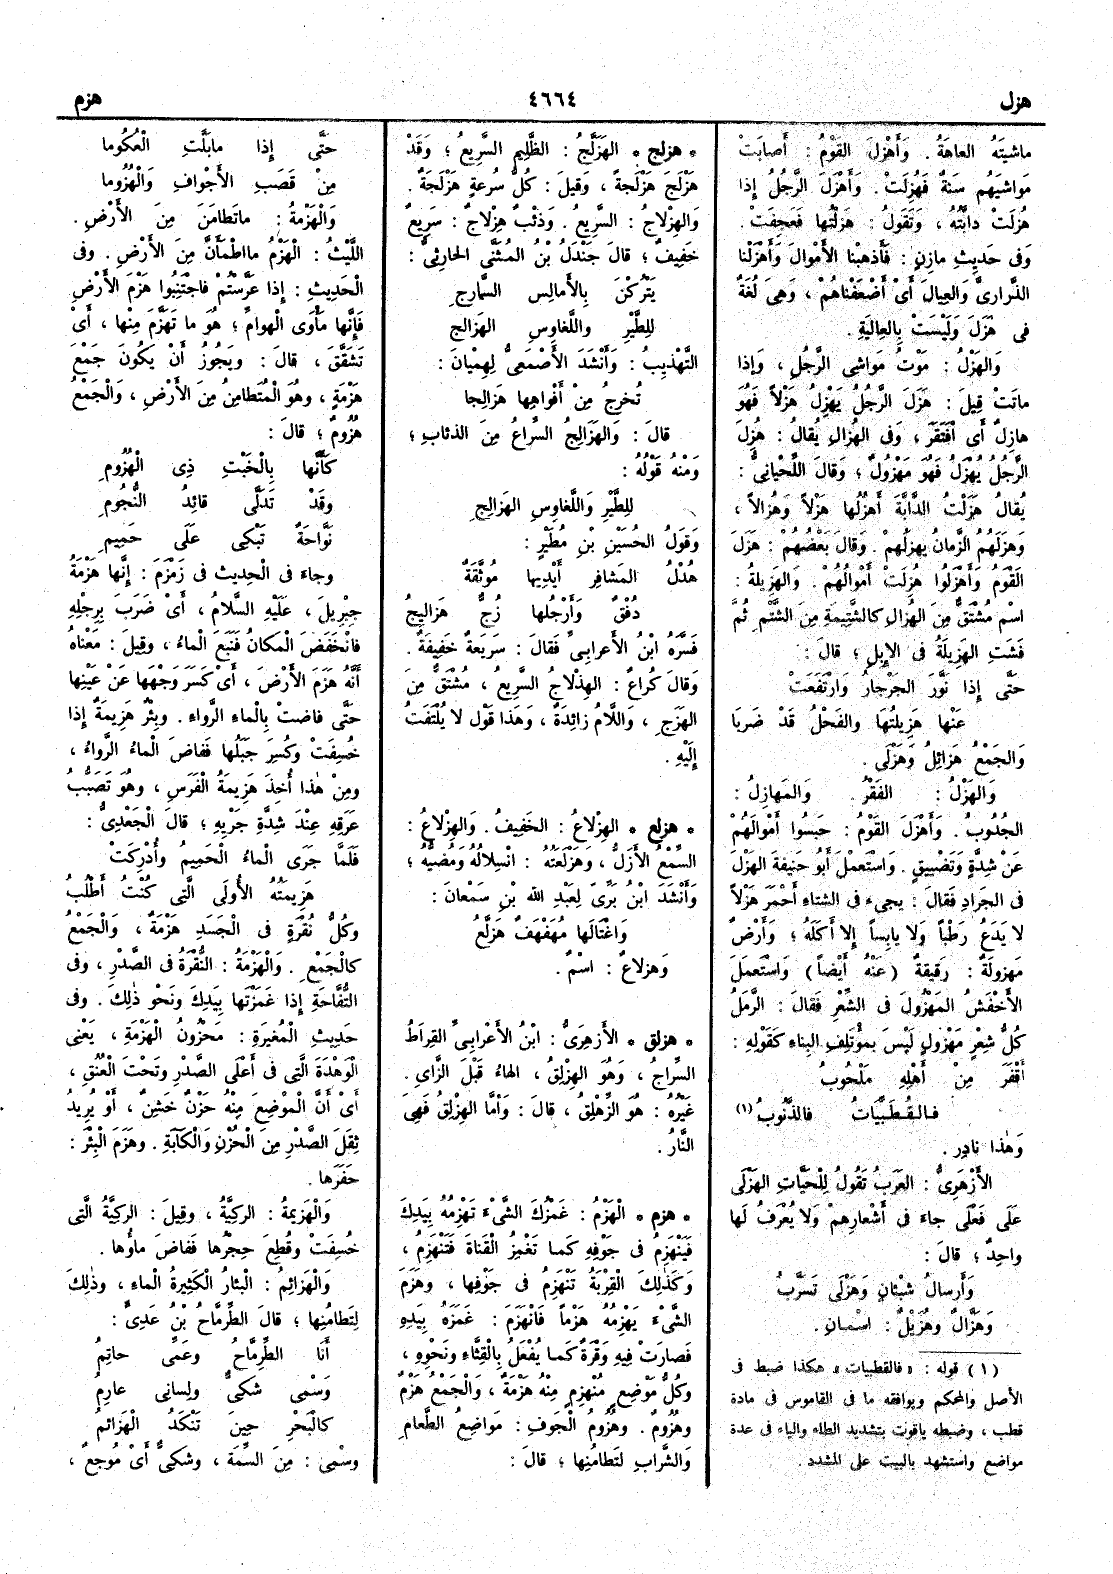 هزل
٤٦٦٤
هزم
ماشيتَه العاهةُ . وَأَهْزَلَ القَوْمُ : أَصابَتْ
مَواشِيَهُم سَنَةٌ فَهُزِلَتْ . وَأَهْزَلَ الرَّجُلُ إِذا
هُزِلَتْ دابَّتُه ، وَتَقُولُ : هَزَلْتُها فَعَجِفَتْ .
وَفى حَدِيثِ مازِنٍ : فَأَذهَبْنا الأَمْوالَ وَأَهْزَلْنا
الذَّرارِىَّ وَالعِيالَ أَىْ أَضْعَفْناهُمْ ، وَهى لُغَةٌ
فى هَزَلَ وَلَيْسَتْ بِالعالِيَةِ .
وَالهَزْلُ : مَوْتُ مَواشِى الرَّجُلِ ، وَإِذا
ماتَتْ قِيلَ : هَزَلَ الرَّجُلُ يَهْزِلُ هَزْلاً فَهُوَ
هازِلٌ أَى افْتَقَرَ ، وَفى الهُزالِ يُقالُ : هُزِلَ
الرَّجُلُ يُهْزَلُ فَهُوَ مَهْزُولٌ ؛ وَقالَ اللِّحْيانِىُّ :
يُقالُ هَزَلْتُ الدَّابَّةَ أَهْزُلُها هَزْلاً وَهُزالاً ،
وَهَزَلَهُمُ الزَّمانُ يَهْزِلُهُمْ . وَقالَ بَعْضُهُمْ : هَزَلَ
القَوْمُ وَأَهْزَلُوا هُزِلَتْ أَمْوالُهُمْ . وَالهَزِيلَةُ :
اسْم مُشْتَقٌّ مِنَ الهُزالِ كالشَّتِيمَةِ مِنَ الشَّتْمِ ثُمَّ
فَشَتِ الهَزِيلَةُ فى الإِبِلِ ؛ قالَ :
حَتَّى إِذا نَوَّرَ الجَرْجارُ وَارْتَفَعَتْ
عَنْها هَزِيلَتُها وَالفَحْلُ قَدْ ضَرَبَا
وَالجَمْعُ هَزائِلُ وَهَزْلَى .
وَالهَزْلُ : الفَقْرُ . وَالمَهازِلُ :
الجُدُوبُ . وَأَهْزَلَ القَوْمُ : حَبَسُوا أَمْوالَهُمْ
عَنْ شِدَّةٍ وَتَضْيِيقٍ . وَاسْتَعْمَلَ أَبُو حَنِيفَةَ الهَزْلَ
فى الجَرادِ فَقالَ : يجىء فى الشتاءِ أَحْمَرَ هَزْلاً
لا يَدَعُ رَطْباً وَلا يابِساً إِلا أَكَلَهُ ؛ وَأَرْضٌ
مَهْزولَةٌ : رَقِيقَةٌ (عَنْهُ أَيْضاً) وَاسْتَعمَلَ
الأَخْفَشُ المَهْزُولَ فى الشِّعْرِ فَقالَ : الرَّمَلُ
كُلُّ شِعْرٍ مَهْزولٍ لَيْسَ بِمُؤْتَلِفِ البِناءِ كَقَوْلِهِ :
أَقْفَرَ مِنْ أَهْلِهِ مَلْحُوبُ
فَالقُطَبِيَّاتُ فَالذَّنُوبُ (١)
وَهٰذا نادِر .
الأَزْهَرِىُّ : العَرَبُ تَقُولُ لِلْحَيَّاتِ الهَزْلَى
عَلَى فَعْلَى جاءَ فى أَشْعارِهِمْ وَلا يُعْرَفُ لَها
واحِدٌ ؛ قالَ :
وَأَرسالُ شِبْثانٍ وَهَزْلَى تَسَرَّبُ
وَهَزَّالٌ وَهُزَيْلٌ : اسْمانِ .
(١) قوله : « فالقطبيات » هكذا ضبط فى
الأصل والمحكم ويوافقه ما فى القاموس فى مادة
قطب ، وضبطه ياقوت بتشديد الطاء والياء فى عدة
مواضع واستشهد بالبيت على المشدد .
• هزلج • الهَزَلَّجُ : الظَّلِيم السَّرِيعُ ؛ وَقَدْ
هَزْلَجَ هَزْلَجةً ، وَقِيلَ : كُلُّ سُرعةٍ هَزْلَجَةٌ .
وَالهِزْلاجُ : السَّرِيعُ . وَذِئْبٌ هِزْلاجٌ : سَرِيعٌ
خَفِيفٌ ؛ قالَ جَنْدَلُ بْنُ المُثَنَّى الحارِثِىُّ :
يَتْرُكْنَ بِالأَمالِسِ السَّمارِجِ
لِلطَّيْرِ وَاللَّغاوِسِ الهَزالجِ
التَّهْذِيبُ : وَأَنْشَدَ الأَصْمَعىُّ لِهِمْيانَ :
تُخرِجُ مِنْ أَفْواهِها هَزالِجا
قالَ : وَالهَزالِجُ السِّراعُ مِنَ الذئابِ ؛
وَمِنْهُ قَوْلُهُ :
لِلطَّيْرِ وَاللَّغاوِسِ الهَزالِجِ
وَقَولُ الحُسَيْنِ بْنِ مُطَيْرٍ :
هُدْلُ المَشافِرِ أَيْدِيها مُوَثَّقَةٌ
دُفْقٌ وَأَرْجُلُها زُجٌّ هَزالِيجُ
فَسَّرَهُ ابْنُ الأَعْرابِىِّ فَقالَ : سَرِيعَةٌ خَفِيفَةٌ .
وَقالَ كُراعٌ : الهِذْلاجُ السَّرِيعُ ، مُشْتَقٌّ مِنَ
الهَزَجِ ، وَاللَّامُ زائِدَةٌ ، وَهٰذا قَوْل لا يُلْتَفَتُ
إِلَيْهِ .
• هزلع • الهِزْلاعُ : الخَفِيفُ . وَالهِزْلاعُ :
السِّمْعُ الأَزَلُّ ، وَهَزْلَعَتُهُ : انْسِلالُهُ وَمُضِيُّهُ ؛
وَأَنْشَدَ ابْنُ بَرِّىٍّ لِعَبْدِ الله بْنِ سَمْعانَ :
وَاغْتَالَها مُهَفْهَفٌ هَزَلَّعُ
وَهِزلاعٌ : اسْمٌ .
• هزلق • الأَزْهَرِىُّ : ابْنُ الأَعْرابِىِّ القِراطُ
السِّراجُ ، وَهُوَ الهِزْلِقُ ، الهاءُ قَبْلَ الزَّاىِ .
غَيْرُهُ : هُوَ الزِّهْلِقُ ، قالَ : وَأَمَّا الهِزْلِقُ فَهِىَ
النَّارُ .
• هزم • الْهَزْمُ : غَمْزُكَ الشَّىْءَ تَهْزِمُهُ بِيَدِكَ
فَيَنْهَزِمُ فى جَوْفِهِ كَما تَغْمِزُ الْقَناةَ فَتَنْهَزِمُ ،
وَكَذٰلِكَ الْقِرْبَةُ تَنْهَزِمُ فى جَوْفِها ، وَهَزَمَ
الشَّىْءَ يَهْزِمُهُ هَزْماً فَانْهَزَمَ : غَمَزَهُ بِيَدِهِ
فَصارَتْ فِيهِ وَقْرَةٌ كَما يُفْعَلُ بِالْقِثَّاءِ وَنَحْوِهِ ،
وَكُلُّ مَوْضِعٍ مُنْهَزِمٍ مِنْهُ هَزْمَةٌ ، وَالْجَمْعُ هَزْمٌ
وَهُزُومٌ . وَهُزُومُ الْجَوفِ : مَواضِعُ الطَّعامِ
وَالشَّرابِ لتَطامُنِها ؛ قالَ :
حَتَّى إِذا مابَلَّتِ الْعُكُوما
مِنْ قَصَبِ الأَجْوافِ وَالْهُزُوما
وَالْهَزْمَةُ : ماتَطامَنَ مِنَ الأَرْضِ .
اللَّيْثُ : الْهَزْمُ مااطْمَأَنَّ مِنَ الأَرْضِ . وَفى
الْحَدِيثِ : إِذا عَرَّسْتُمْ فَاجْتَنِبُوا هَزْمَ الأَرْضِ
فَإِنَّها مَأْوَى الْهوامِّ ؛ هُوَ ما تَهَزَّمَ مِنْها ، أَىْ
تَشَقَّقَ ، قالَ : وَيَجُوزُ أَنْ يَكُونَ جَمْعَ
هَزْمَةٍ ، وهُوَ الْمُتَطامِنُ مِنَ الأَرْضِ ، وَالْجَمْعُ
هُزُومٌ ؛ قالَ :
كَأَنَّها بِالْخَبْتِ ذِى الْهُزُومِ
وَقَدْ تَدَلَّى قائِدُ النُّجُومِ
نَوَّاحَةٌ تَبْكِى عَلَى حَمِيمِ
وجاءَ فى الْحَدِيث فى زَمْزَمَ : إِنَّها هَزْمَةُ
جِبْرِيلَ ، عَلَيْهِ السَّلامُ ، أَىْ ضَرَبَ بِرِجْلِهِ
فانْخَفَضَ الْمكانُ فَنَبَعَ الْماءُ ، وقِيلَ : مَعْناه
أَنَّهُ هَزَمَ الأَرْضَ ، أَىْ كَسَرَ وَجْهَها عَنْ عَيْنِها
حَتَّى فاضَتْ بِالْماءِ الرَّواءِ . وبِئْرٌ هَزِيمَةٌ إِذا
خُسِفَتْ وكُسِرَ جَبَلُها فَفاضَ الْماءُ الرَّواءُ ،
ومِنْ هٰذا أُخِذَ هَزِيمَةُ الْفَرَسِ ، وهُوَ تَصَبُّبُ
عَرَقِهِ عِنْدَ شِدَّةِ جَرْيِهِ ؛ قالَ الْجَعْدِىُّ :
فَلَمَّا جَرَى الْماءُ الْحَمِيمُ وأُدْرِكَتْ
هَزِيمَتُهُ الأُولَى الَّتِى كُنْتُ أَطْلُبُ
وكُلُّ نُقْرَةٍ فى الْجَسَدِ هَزْمَةٌ ، وَالْجَمْعُ
كالْجَمْعِ . وَالْهَزْمَةُ : النُّقْرَةُ فى الصَّدْرِ ، وفى
التُّفَّاحَةِ إِذا غَمَزْتَها بِيَدِكَ ونَحْوِ ذٰلِكَ . وفى
حَدِيثِ الْمُغيرَةِ : مَحْزُونُ الْهَزْمَةِ ، يَعْنِى
الْوَهْدَةَ الَّتِى فى أَعْلَى الصَّدْرِ وتَحْتَ الْعُنُقِ ،
أَىْ أَنَّ الْمَوْضِعَ مِنْهُ حَزْنٌ خَشِنٌ ، أَوْ يُرِيدُ
ثِقَلَ الصَّدْرِ مِنَ الْحُزْنِ وَالْكَآبَةِ . وهَزَمَ الْبِئْرَ :
حَفَرَها .
وَالْهَزِيمَةُ : الرَّكِيَّةُ ، وقِيلَ : الرَّكِيَّةُ الَّتِى
خُسِفَتْ وقُطِعَ حِجْرُها فَفاضَ ماؤُها .
وَالْهَزائِمُ : الْبِئارُ الْكَثِيرَةُ الْماءِ ، وذٰلِكَ
لِتَطامُنِها ؛ قالَ الطِّرِمَّاحُ بْنُ عَدِىٍّ :
أَنا الطِّرِمَّاحُ وعَمِّى حاتِمُ
وَسْمِى شَكِىٌّ ولِسانِى عارِمُ
كالْبَحْرِ حِينَ تَنْكَدُ الْهَزائمُ
وسْمِى : مِنَ السِّمَةِ ، وشَكِىٌّ أَىْ مُوجِعٌ ،